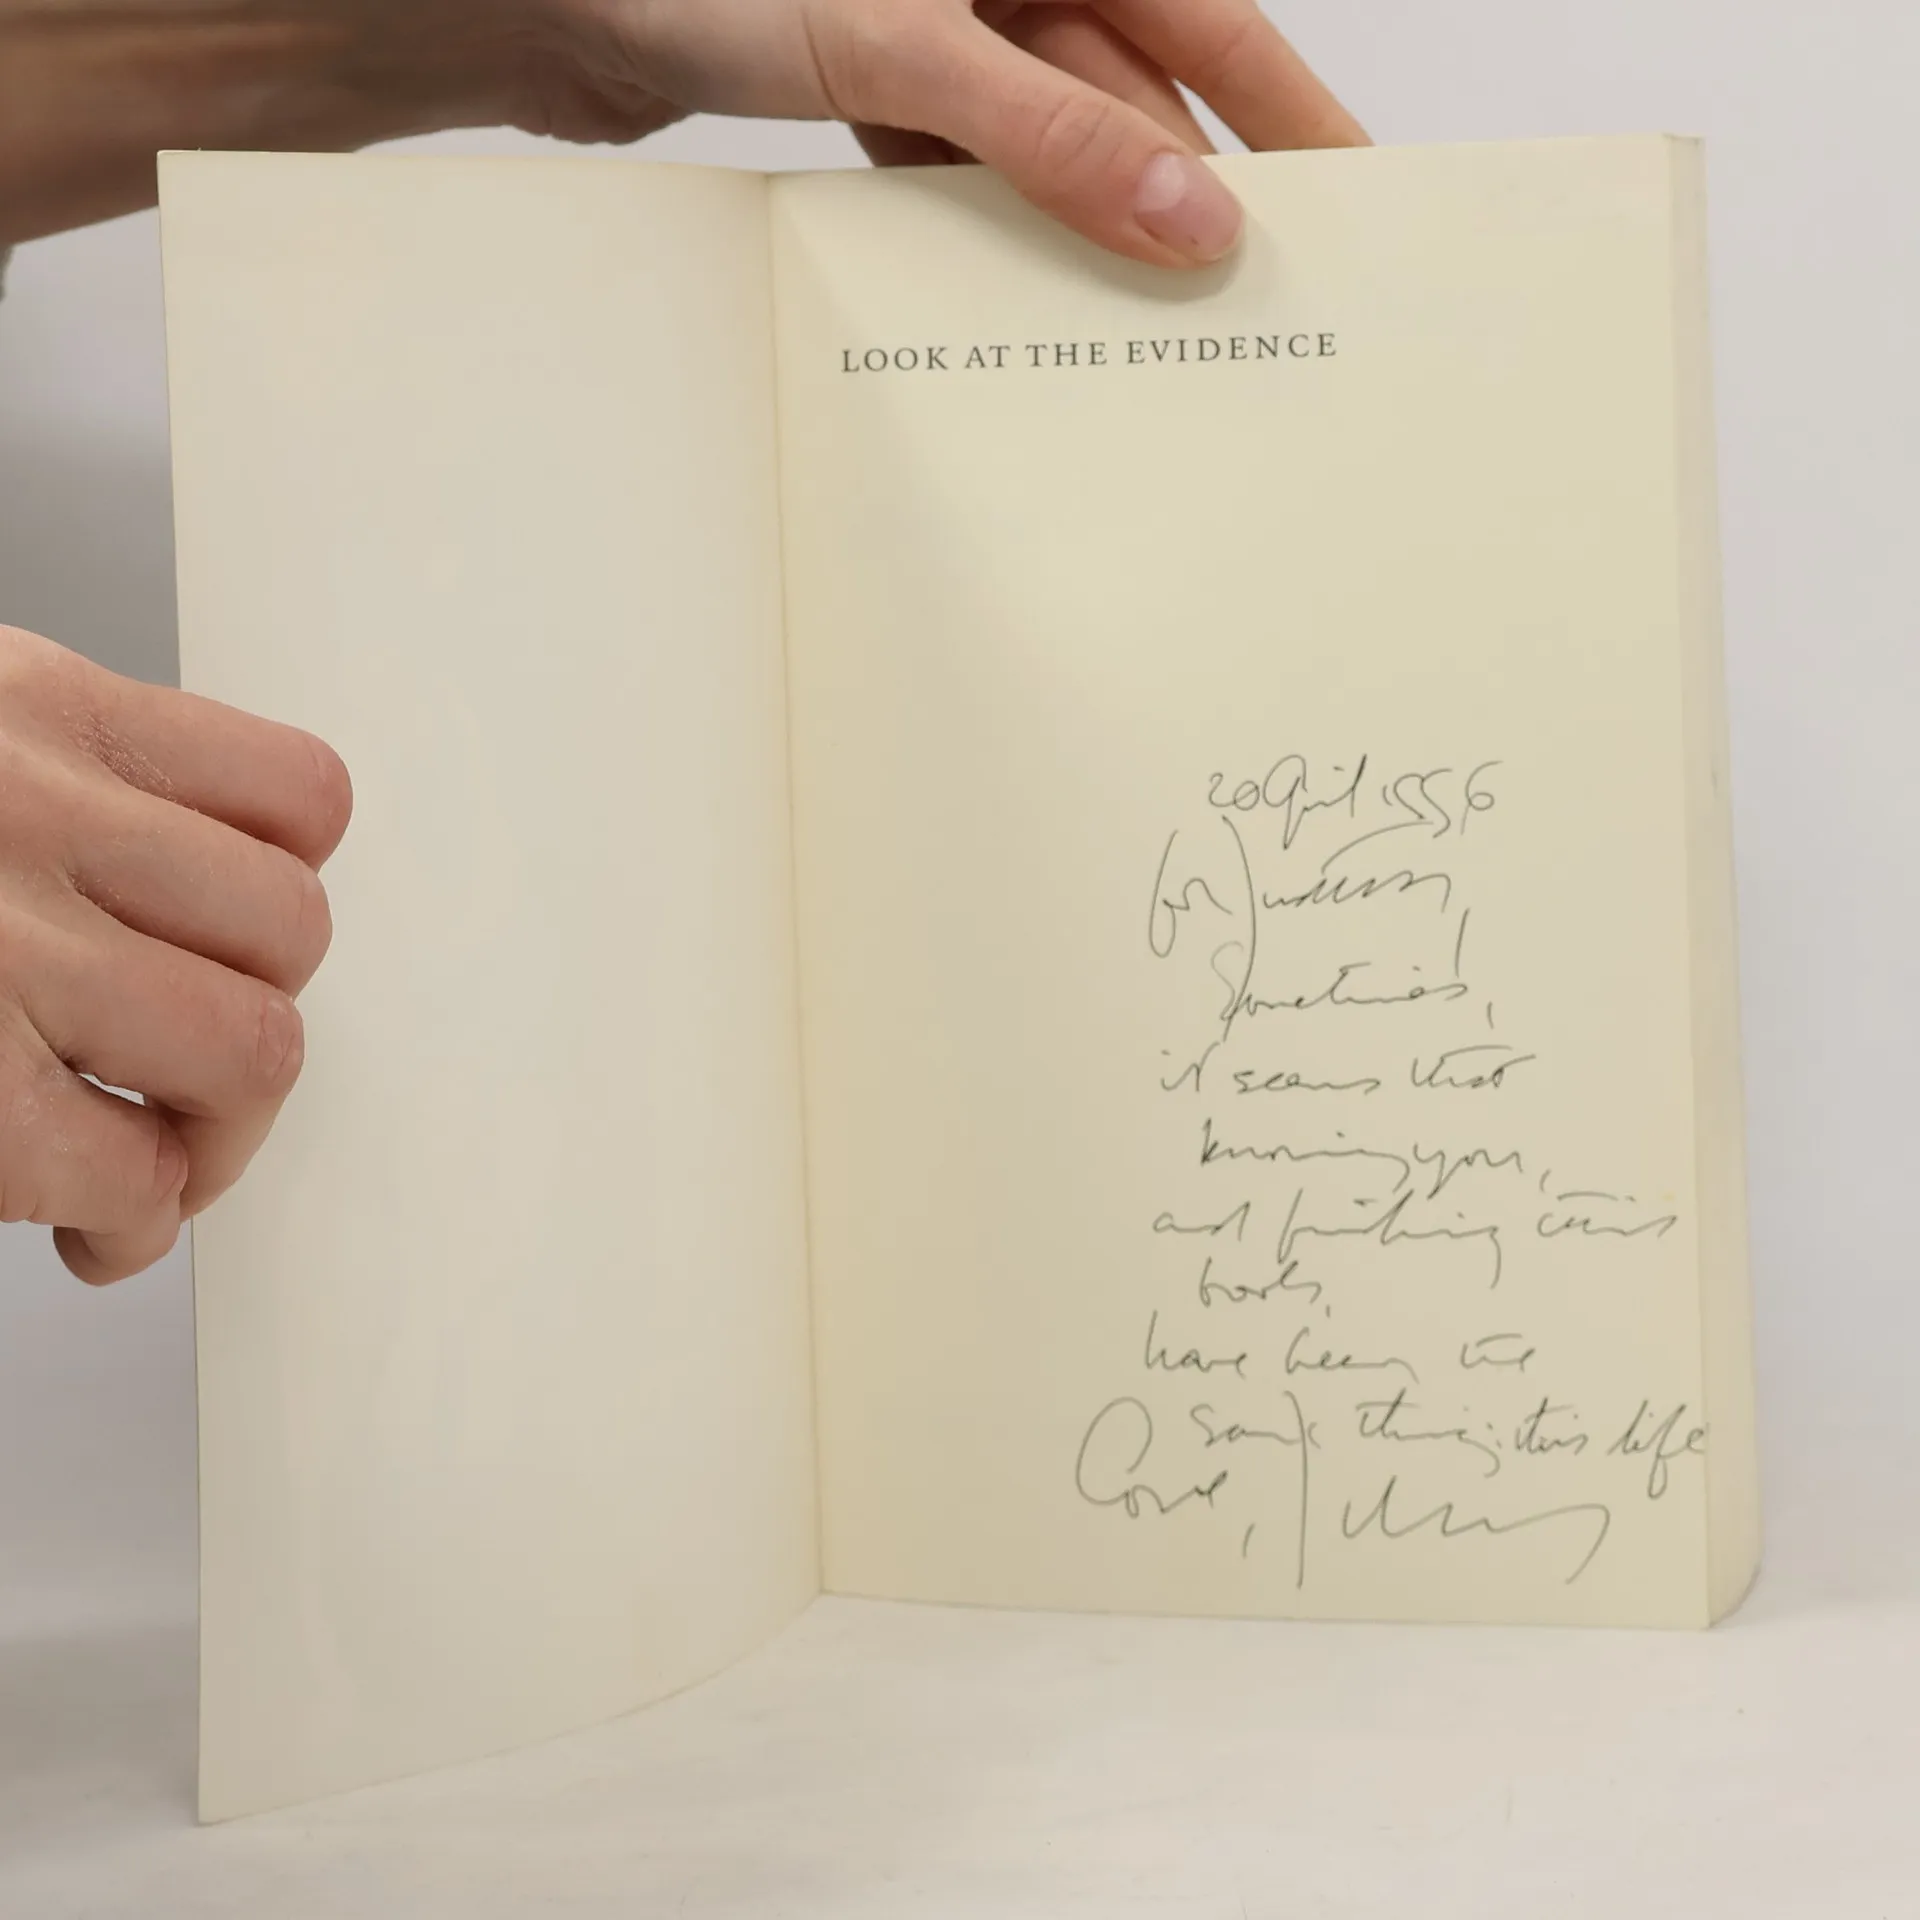 LOOK AT THE EVIDENCE
20 April 1996
for
Sometimes,
it seems that
knowing you,
and finishing this
book,
have been the
same thing: this life
Love,